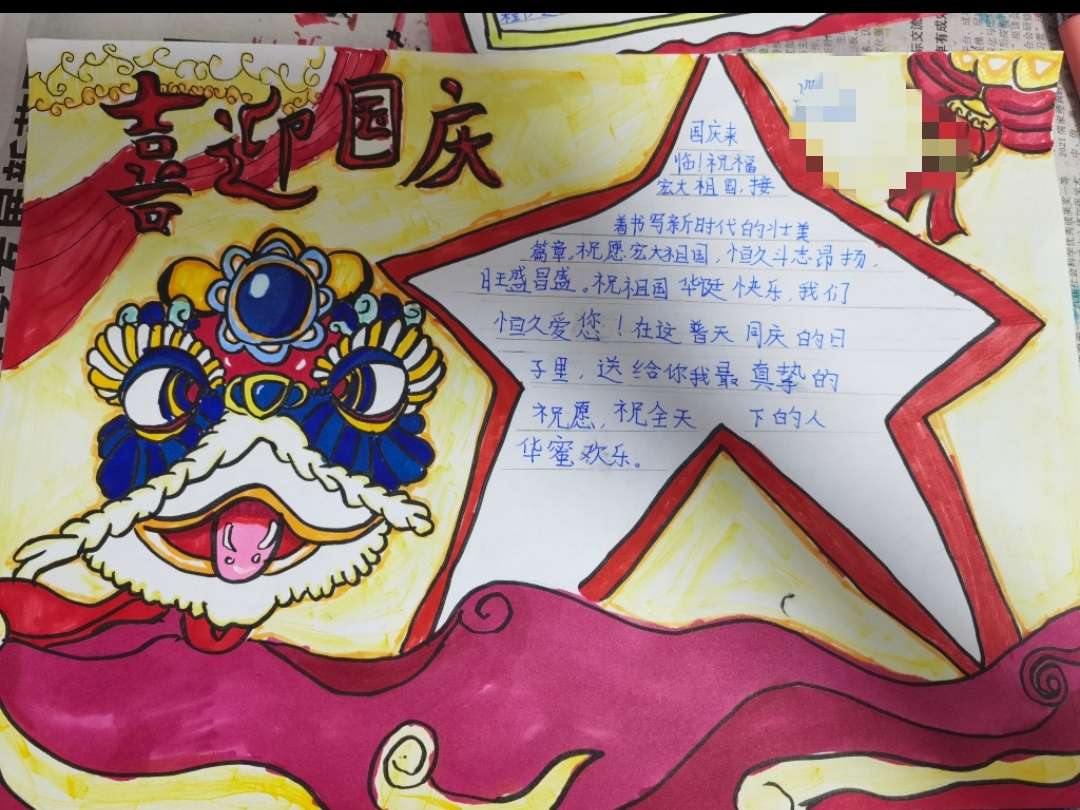 喜迎国庆
国庆来
临!祝福
宏大祖国,接
着书写新时代的壮美
篇章,祝愿宏大祖国,恒久斗志昂扬,
旺盛昌盛。祝祖国华诞快乐,我们
恒久爱您!在这普天同庆的日
子里,送给你我最真挚的
祝愿,祝全天下的人
华蜜欢乐。